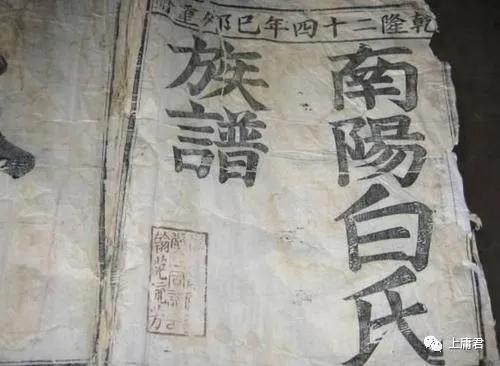 乾隆二十四年巳卯重
南陽白氏
族譜
上庸君